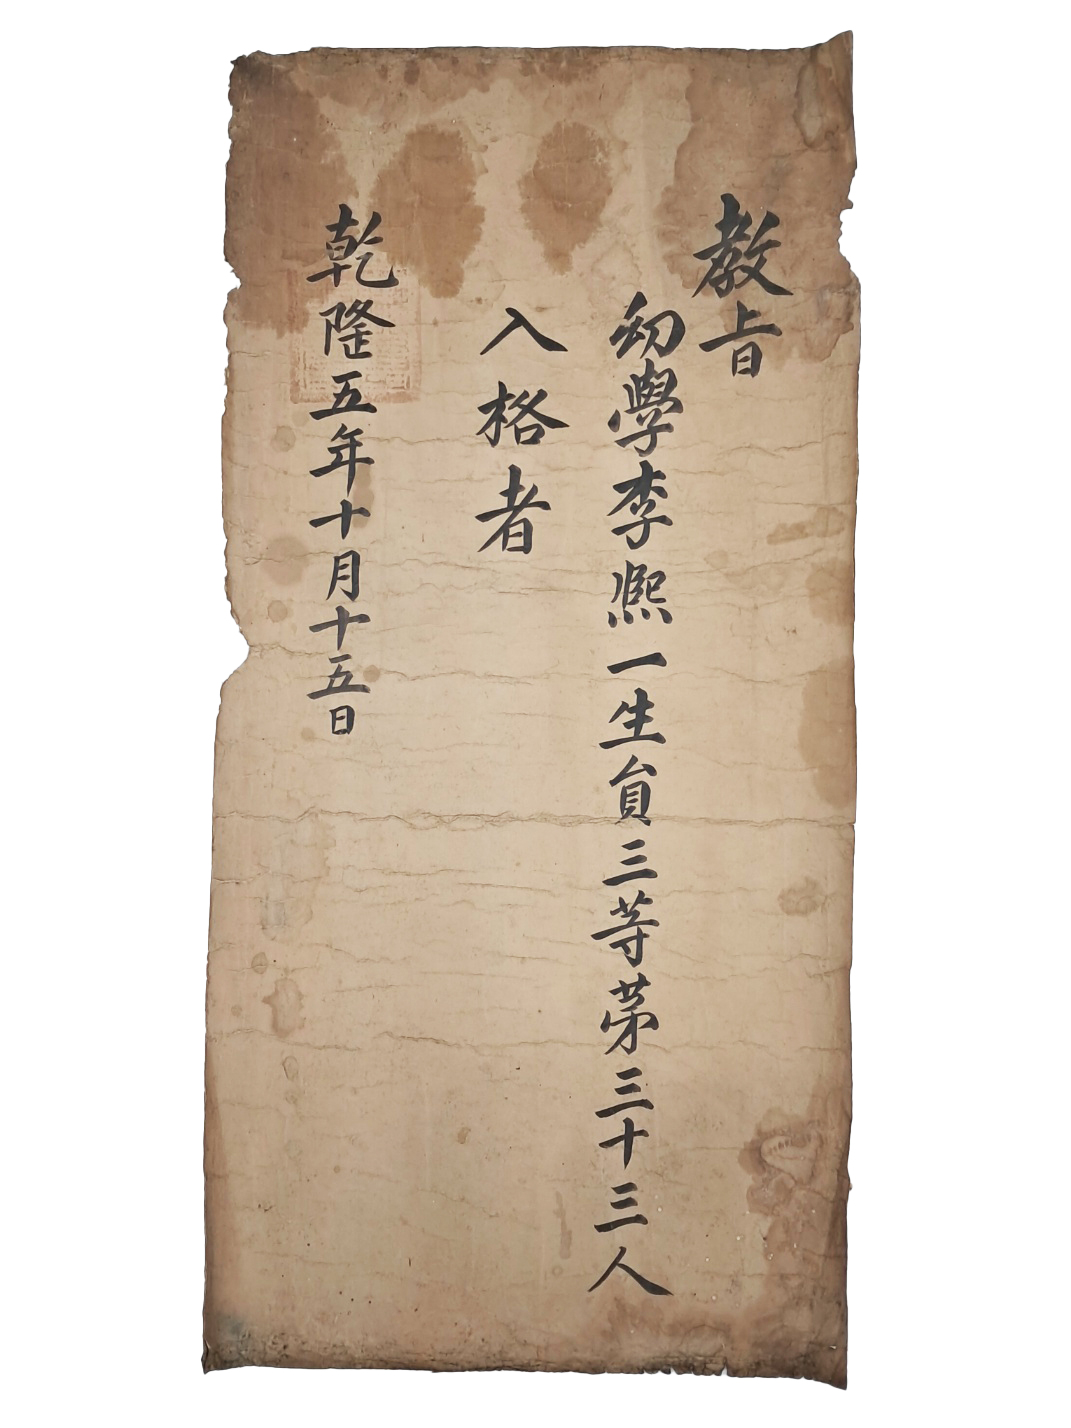 教旨
幼學李熙一生員三等第三十三人
入格者
乾隆五年十月十五日